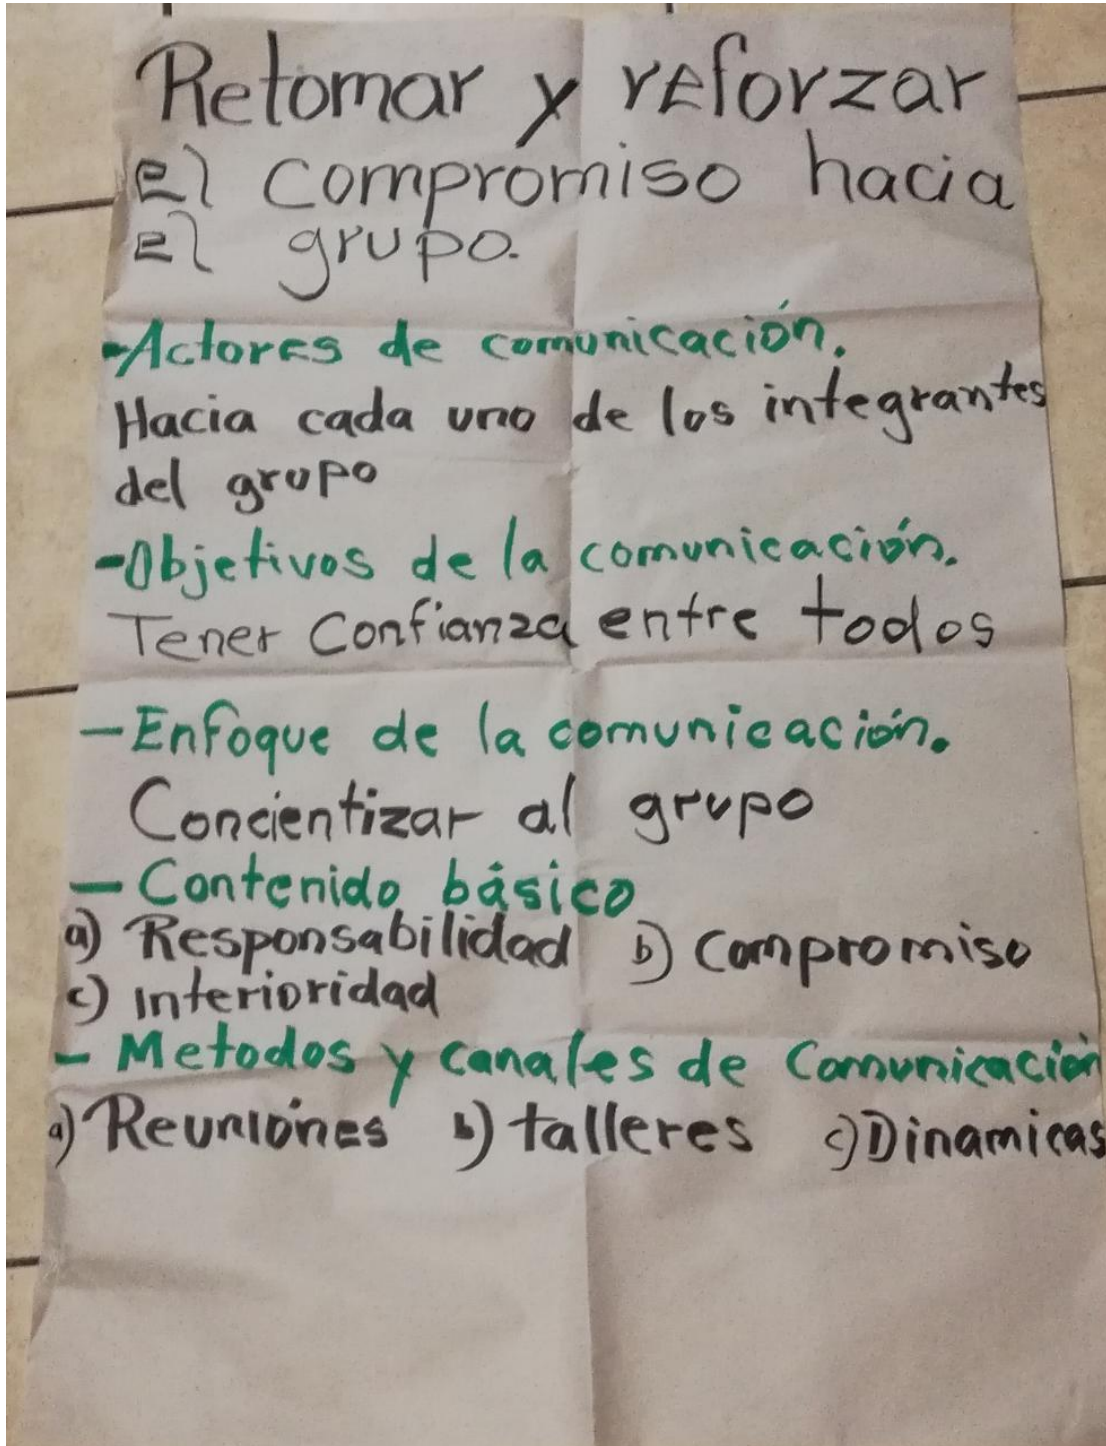 Retomar y reforzar
El compromiso hacia
El grupo.
-Actores de comunicación.
Hacia cada uno de los integrantes
del grupo
-Objetivos de la comunicación.
Tener Confianza entre todos
-Enfoque de la comunicación.
Concientizar al grupo
- Contenido básico
a) Responsabilidad b) compromiso
c) interioridad
- Metodos y canales de Comunicación
a) Reuniónes b) talleres c) Dinamicas